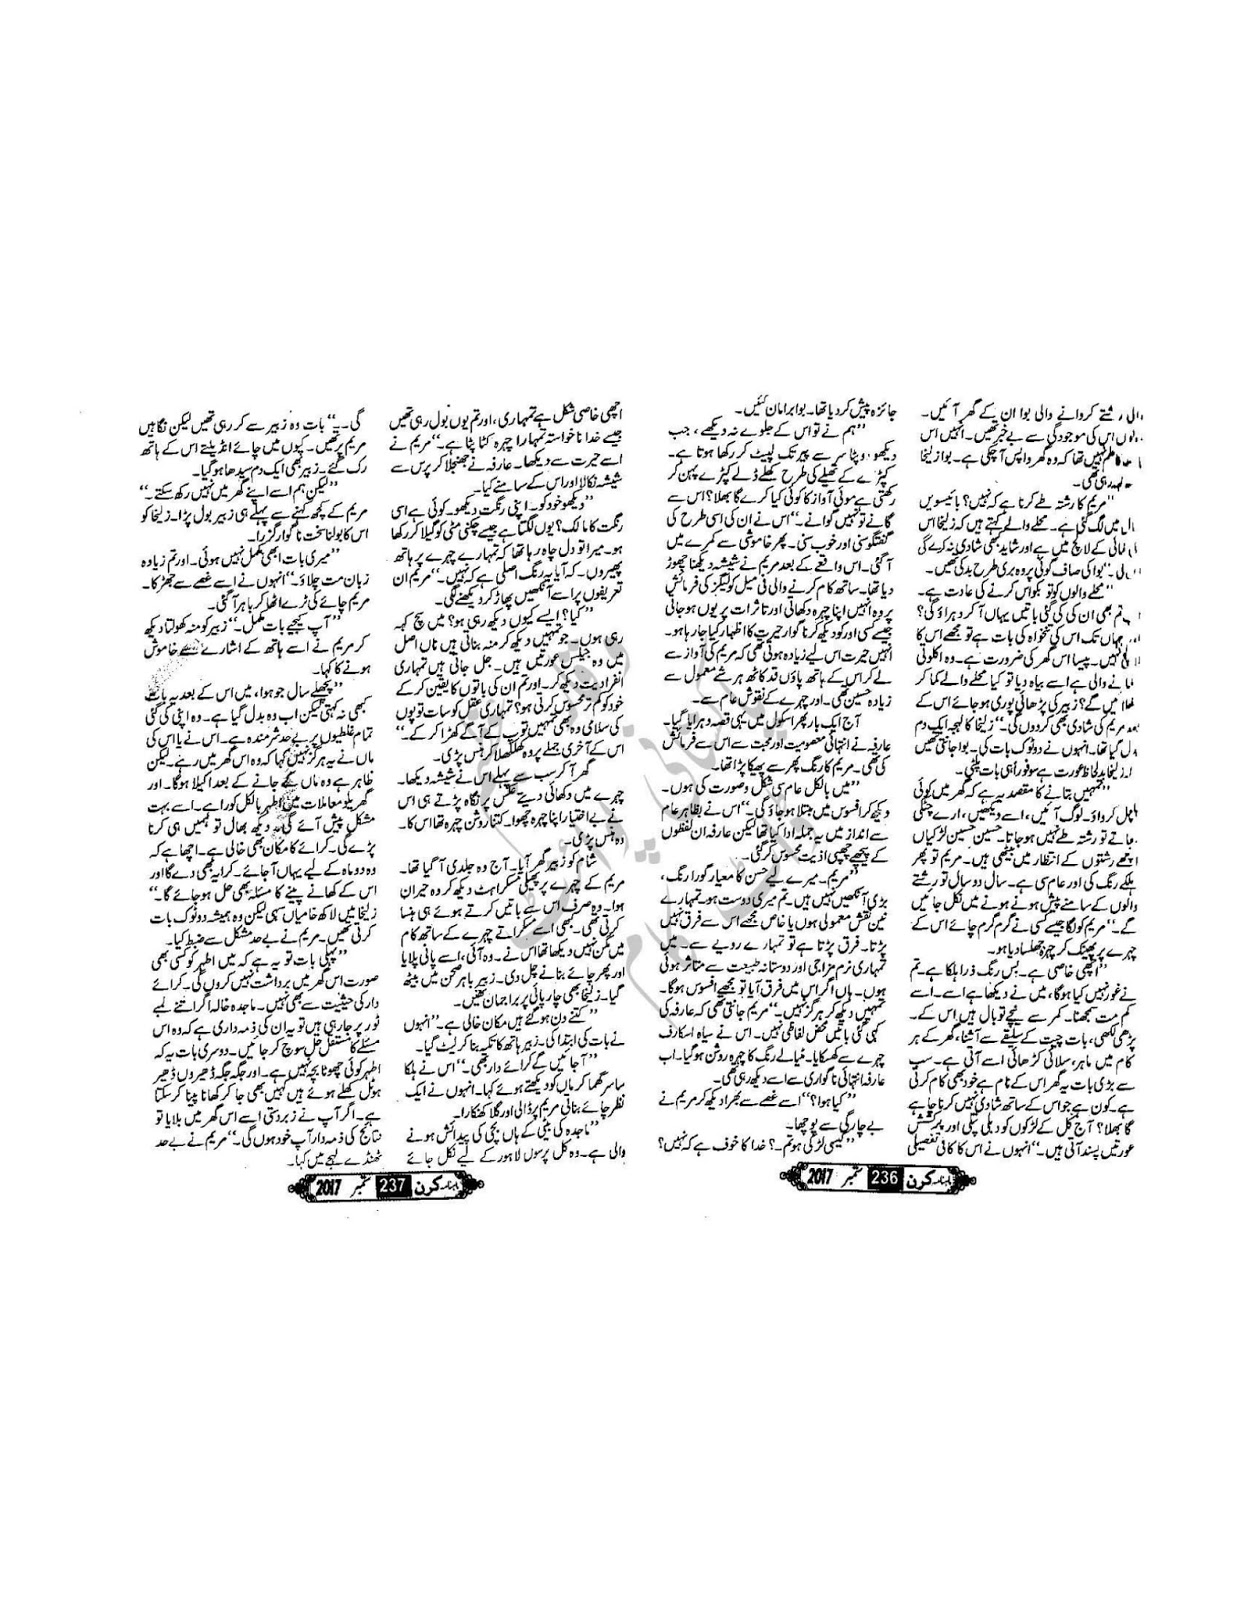 والی رشتے کروانے والی بوا ان کے گھر آئیں۔
اس کی موجودگی سے بے خبر تھیں۔ انہیں اس
علم نہیں تھا کہ وہ گھر واپس آ چکی ہے۔ بوا زلیخا
رہی تھی۔
”مریم کا رشتہ طے کرنا ہے کہ نہیں؟ بائیسویں
میں لگ گئی ہے۔ محلے والے کہتے ہیں کہ زلیخا اس
کمائی کے لالچ میں ہے اور شاید بھی شادی نہ کرے گی
بوا کی صاف گوئی پر وہ بری طرح بدکی تھیں۔
”محلے والوں کو تو بکواس کرنے کی عادت ہے۔
تم بھی ان کی کی گئی باتیں یہاں آ کر دہراؤ گی؟
جہاں تک اس کی تنخواہ کی بات ہے تو مجھے اس کا
لالچ نہیں۔ پیسا اس گھر کی ضرورت ہے۔ وہ اکلوتی
کمانے والی ہے اسے بیاہ دیا تو کیا محلے والے کما کر
کھلائیں گے؟ زبیر کی پڑھائی پوری ہو جائے اس کے
بعد مریم کی شادی بھی کردوں گی۔“ زلیخا کا لہجہ ایک دم
بدل گیا تھا۔ انہوں نے دو ٹوک بات کی۔ بوا جانتی تھیں
زلیخا بدلحاظ عورت ہے سو فوراً ہی بات پلٹی۔
”تمہیں بتانے کا مقصد یہ ہے کہ گھر میں کوئی
ہلچل کرواؤ۔ لوگ آئیں، اسے دیکھیں، ارے چٹکی
بجاتے تو رشتہ طے نہیں ہو جاتا۔ حسین حسین لڑکیاں
اچھے رشتوں کے انتظار میں بیٹھی ہیں۔ مریم تو پھر
ہلکے رنگ کی اور عام سی ہے۔ سال دو سال تو رشتے
والوں کے سامنے پیش ہونے ہونے میں نکل جائیں
گے۔“ مریم کو لگا جیسے کسی نے گرم گرم چائے اس کے
چہرے پر پھینک کر چہرہ جھلسا دیا ہو۔
”اچھی خاصی ہے۔ بس رنگ ذرا ہلکا ہے۔ تم
نے غور نہیں کیا ہوگا، میں نے دیکھا ہے اسے۔ اسے
کم مت سمجھنا۔ کمر سے نیچے تو بال ہیں اس کے۔
پڑھی لکھی، بات چیت کے سلیقے سے آشنا، گھر کے ہر
کام میں ماہر، سلائی کڑھائی اسے آتی ہے۔ سب
سے بڑی بات یہ گھر اس کے نام ہے خود بھی کام کرتی
ہے۔ کون ہے جو اس کے ساتھ شادی نہیں کرنا چاہے
گا بھلا؟ آج کل کے لڑکوں کو دبلی پتلی اور پرکشش
عورتیں پسند آتی ہیں۔“ انہوں نے اس کا کافی تفصیلی
جائزہ پیش کر دیا تھا۔ بوا برا مان گئیں۔
”ہم نے تو اس کے جلوے نہ دیکھے، جب
دیکھو، دوپٹا سر سے پیر تک لپیٹ کر رکھا ہوتا ہے۔
کپڑے کے تھیلے کی طرح کھلے ڈلے کپڑے پہن کر
رکھتی ہے سوئی آواز کا کوئی کیا کرے گا بھلا؟ اس سے
گانے تو نہیں گوانے۔“ اس نے ان کی اسی طرح کی
گفتگو سنی اور خوب سنی۔ پھر خاموشی سے کمرے میں
آ گئی۔ اس واقعے کے بعد مریم نے شیشہ دیکھنا چھوڑ
دیا تھا۔ ساتھ کام کرنے والی فی میل کولیگز کی فرمائش
پر وہ انہیں اپنا چہرہ دکھاتی اور تاثرات پر یوں ہو جاتی
جیسے کسی اور کو دیکھ کر ناگوار حیرت کا اظہار کیا جا رہا ہو۔
انہیں حیرت اس لیے زیادہ ہوتی تھی کہ مریم کی آواز سے
لے کر اس کے ہاتھ پاؤں قد کاٹھ ہر شے معمول سے
زیادہ حسین تھی۔ اور چہرے کے نقوش عام سے۔
آج ایک بار پھر اسکول میں یہی قصہ دہرایا گیا۔
عارفہ نے انتہائی معصومیت اور محبت سے اس سے فرمائش
کی تھی۔ مریم کا رنگ پھر سے پھیکا پڑا تھا۔
”میں بالکل عام سی شکل و صورت کی ہوں۔
دیکھ کر افسوس میں مبتلا ہو جاؤ گی۔“ اس نے بظاہر عام
سے انداز میں یہ جملہ ادا کیا تھا لیکن عارفہ ان لفظوں
کے پیچھے چھپی اذیت محسوس کر گئی۔
”مریم۔ میرے لیے حسن کا معیار گورا رنگ،
بڑی آنکھیں نہیں ہیں۔ تم میری دوست ہو۔ تمہارے
نین نقش معمولی ہوں یا خاص مجھے اس سے فرق نہیں
پڑتا۔ فرق پڑتا ہے تو تمہارے رویے سے۔ میں
تمہاری نرم مزاجی اور دوستانہ طبیعت سے متاثر ہوئی
ہوں۔ ہاں اگر اس میں فرق آیا تو مجھے افسوس ہوگا۔
تمہیں دیکھ کر ہرگز نہیں۔“ مریم جانتی تھی کہ عارفہ کی
کہی گئی باتیں محض لفاظی نہیں۔ اس نے سیاہ اسکارف
چہرے سے کھسکایا۔ مٹیالے رنگ کا چہرہ روشن ہو گیا۔ اب
عارفہ انتہائی ناگواری سے اسے دیکھ رہی تھی۔
”کیا ہوا؟“ اسے غصے سے بھرا دیکھ کر مریم نے
بے چارگی سے پوچھا۔
”کیسی لڑکی ہو تم۔؟ خدا کا خوف ہے کہ نہیں؟
ماہنامہ کرن 236 ستمبر 2017
اچھی خاصی شکل ہے تمہاری، اور تم یوں بول رہی تھیں
جیسے خدا ناخواستہ تمہارا چہرہ کٹا پٹا ہے۔“ مریم نے
اسے حیرت سے دیکھا۔ عارفہ نے جھنجلا کر پرس سے
شیشہ نکالا اور اس کے سامنے کیا۔
”دیکھو خود کو۔ اپنی رنگت دیکھو۔ کوئی ہے اسی
رنگت کا مالک؟ یوں لگتا ہے جیسے چکنی مٹی کو گیلا کر رکھا
ہو۔ میرا تو دل چاہ رہا تھا کہ تمہارے چہرے پر ہاتھ
پھیروں۔ کہ آیا یہ رنگ اصلی ہے کہ نہیں۔“ مریم ان
تعریفوں پر اسے آنکھیں پھاڑ کر دیکھنے لگی۔
”کیا؟ ایسے کیوں دیکھ رہی ہو؟ میں سچ کہہ
رہی ہوں۔ جو تمہیں دیکھ کر منہ بناتی ہیں ناں اصل
میں وہ جیلس عورتیں ہیں۔ جل جاتی ہیں تمہاری
انفرادیت دیکھ کر۔ اور تم ان کی باتوں کا یقین کر کے
خود کو کم تر محسوس کرتی ہو؟ تمہاری عقل کو سات توپوں
کی سلامی وہ بھی تمہیں توپ کے آگے کھڑا کر کے۔“
اس کے آخری جملے پر وہ کھلکھلا کر ہنس پڑی۔
گھر آ کر سب سے پہلے اس نے شیشہ دیکھا۔
چہرے میں دکھائی دیتے عکس پر نگاہ پڑتے ہی اس
نے بے اختیار اپنا چہرہ چھوا۔ کتنا روشن چہرہ تھا اس کا۔
وہ ہنس پڑی۔
شام کو زبیر گھر آیا۔ آج وہ جلدی آ گیا تھا۔
مریم کے چہرے پر پھیلی مسکراہٹ دیکھ کر وہ حیران
ہوا۔ وہ صرف اس سے باتیں کرتے ہوئے ہی ہنسا
کرتی تھی۔ کبھی اسے مسکراتے چہرے کے ساتھ کام
میں مگن نہیں دیکھا تھا اس نے۔ وہ آئی، اسے پانی پلایا
اور پھر چائے بنانے چل دی۔ زبیر باہر صحن میں بیٹھ
گیا۔ زلیخا بھی چارپائی پر براجمان تھیں۔
”کتنے دن ہو گئے ہیں مکان خالی ہے۔“ انہوں
نے بات کی ابتدا کی۔ زبیر ہاتھ کا تکیہ بنا کر لیٹ گیا۔
”آ جائیں گے کرائے دار بھی۔“ اس نے ہلکا
سا سر گھما کر ماں کو دیکھتے ہوئے کہا۔ انہوں نے ایک
نظر چائے بناتی مریم پر ڈالی اور گلا کھنکارا۔
”ماجدہ کی بیٹی کے ہاں بچی کی پیدائش ہونے
والی ہے۔ وہ کل پرسوں لاہور کے لیے نکل جائے
گی۔“ یہ بات وہ زبیر سے کر رہی تھیں لیکن نگاہیں
مریم پر تھیں۔ کپوں میں چائے انڈیلتے اس کے ہاتھ
رک گئے۔ زبیر بھی ایک دم سیدھا ہو گیا۔
”لیکن ہم اسے اپنے گھر میں نہیں رکھ سکتے۔“
مریم کے کچھ کہنے سے پہلے ہی زبیر بول پڑا۔ زلیخا کو
اس کا بولنا سخت ناگوار گزرا۔
”میری بات ابھی مکمل نہیں ہوئی۔ اور تم زیادہ
زبان مت چلاؤ۔“ انہوں نے اسے غصے سے جھڑکا۔
مریم چائے کی ٹرے اٹھا کر باہر آ گئی۔
”آپ کیجیے بات مکمل۔“ زبیر کو منہ کھولتا دیکھ
کر مریم نے اسے ہاتھ کے اشارے سے خاموش
ہونے کا کہا۔
”پچھلے سال جو ہوا، میں اس کے بعد یہ بات
کبھی نہ کہتی لیکن اب وہ بدل گیا ہے۔ وہ اپنی کی گئی
تمام غلطیوں پر بے حد شرمندہ ہے۔ اس نے یا اس کی
ماں نے یہ ہرگز نہیں کہا کہ وہ اس گھر میں رہے۔ لیکن
ظاہر ہے وہ ماں کے جانے کے بعد اکیلا ہوگا۔ اور
گھریلو معاملات میں اظہر بالکل کورا ہے۔ اسے بہت
مشکل پیش آئے گی۔ دیکھ بھال تو ہمیں ہی کرنا
پڑے گی۔ کرائے کا مکان بھی خالی ہے۔ اچھا ہے کہ
وہ دو ماہ کے لیے یہاں آ جائے۔ کرایہ بھی دے گا اور
اس کے کھانے پینے کا مسئلہ بھی حل ہو جائے گا۔“
زلیخا میں لاکھ خامیاں سہی لیکن وہ ہمیشہ دو ٹوک بات
کرتی تھیں۔ مریم نے بے حد مشکل سے ضبط کیا۔
”پہلی بات تو یہ ہے کہ میں اظہر کو کسی بھی
صورت اس گھر میں برداشت نہیں کروں گی۔ کرائے
دار کی حیثیت سے بھی نہیں۔ ماجدہ خالہ اگر اتنے لمبے
ٹور پر جا رہی ہیں تو یہ ان کی ذمہ داری ہے کہ وہ اس
مسئلے کا مستقل حل سوچ کر جائیں۔ دوسری بات یہ کہ
اظہر کوئی چھوٹا بچہ نہیں ہے۔ اور جگہ جگہ ڈھیروں ڈھیر
ہوٹل کھلے ہوئے ہیں کہیں بھی جا کر کھانا پینا کر سکتا
ہے۔ اگر آپ نے زبردستی اسے اس گھر میں بلایا تو
نتائج کی ذمہ دار آپ خود ہوں گی۔“ مریم نے بے حد
ٹھنڈے لہجے میں کہا۔
ماہنامہ کرن 237 ستمبر 2017